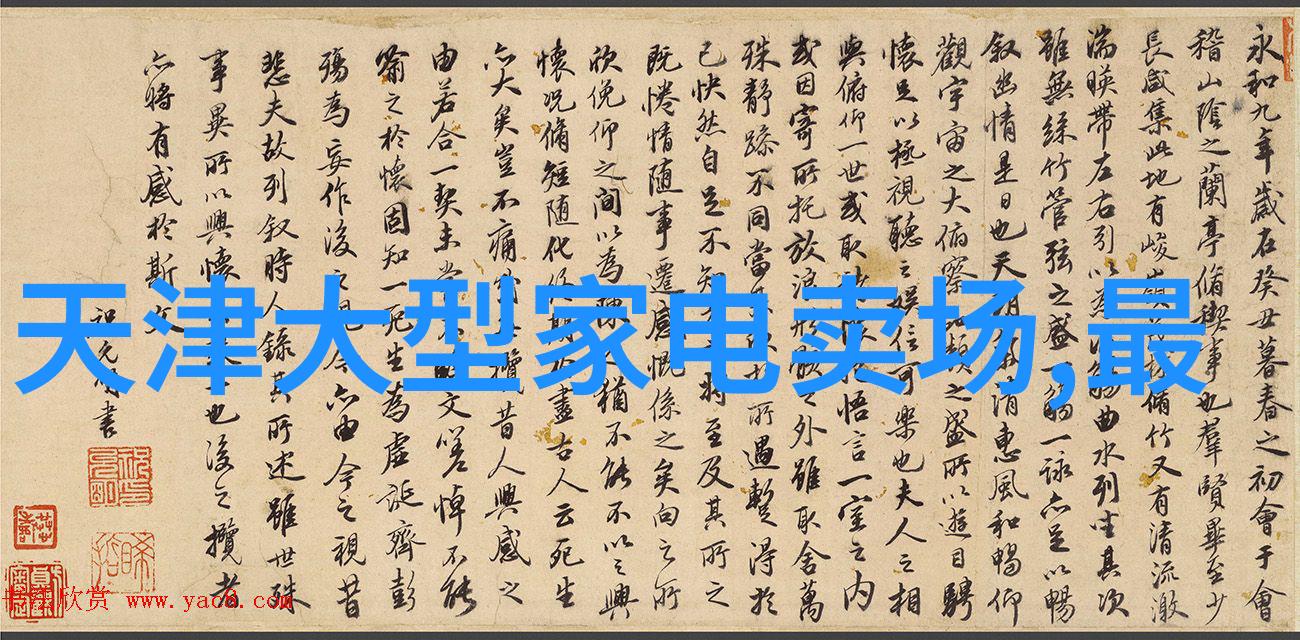 永和九年歲在癸丑暮春之初會于會
稽山陰之蘭亭脩禊事也羣賢畢至少
長咸集此地有峻嶺脩竹又有清流激
湍暎帶左右引以為流觴曲水列坐其次
雖無絲竹管弦之盛一觴一詠亦足以暢
叙幽情是日也天朗清惠風和暢仰
觀宇宙之大俯察品類之盛所以遊目騁
懷足以極視聽之娛信可樂也夫人之相
與俯仰一世或取抱悟言一室之內
或因寄所托放浪形骸之外雖取舍萬
殊靜躁不同當所遇暫得於
己快然自足不知之将至及其所之
既惓情随事遷感慨係之矣向之所
欣俛仰之間以為陳猶不能不以之興
懷况脩短随化期於盡古人云死生
亦大矣豈不痛攬昔人興感之
由若合一契未文嗟悼不能
喻之於懷固知一死生為虛誕齊彭
殤為妄作後之視今亦由今之視昔
悲夫故列叙時人錄其所述雖世殊
事異所以興懷也後之攬者
亦將有感於斯文
祝允明書
天津大型家电卖场,最
书法欣赏 www.yac8.com